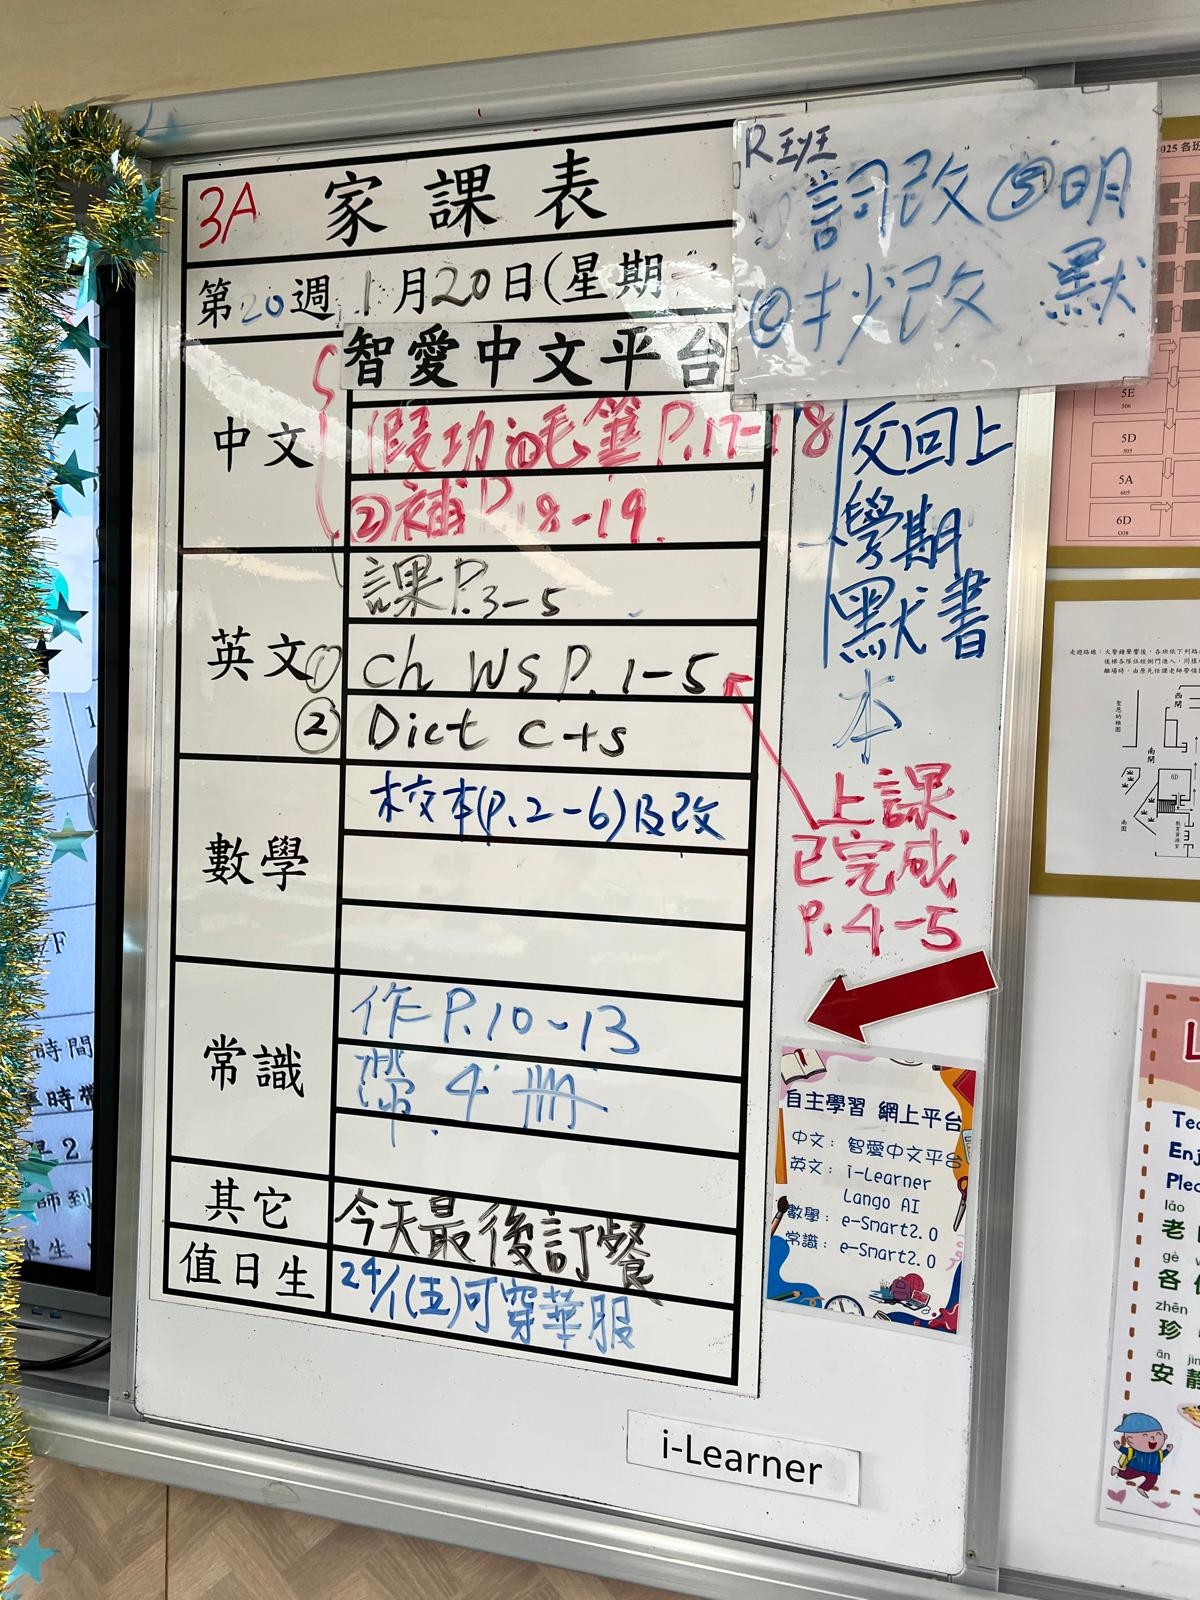 3A 家課表
第20週 1月20日(星期一
智愛中文平台
中文
假功①毛筆P.17-18
②補P.18-19
英文
課P.3-5
① Ch WS P.1-5
② Dict C+S
數學
校本(P.2-6)及改
常識
作P.10-13
帶4冊
其它
今天最後訂餐
值日生
24/1(五)可穿華服
R班
詞改⑤明
②抄改 默
交回上
學期
默書
本
上課
已完成
P.4-5
自主學習 網上平台
中文：智愛中文平台
英文：i-Learner
Lango AI
數學：e-Smart2.0
常識：e-Smart2.0
i-Learner
025 各班
5E
506
5D
505
5A
605
6D
G08
西閘
南閘
6D
南園
Enj
老
gè
各
zhēn
珍
ān
安
時間